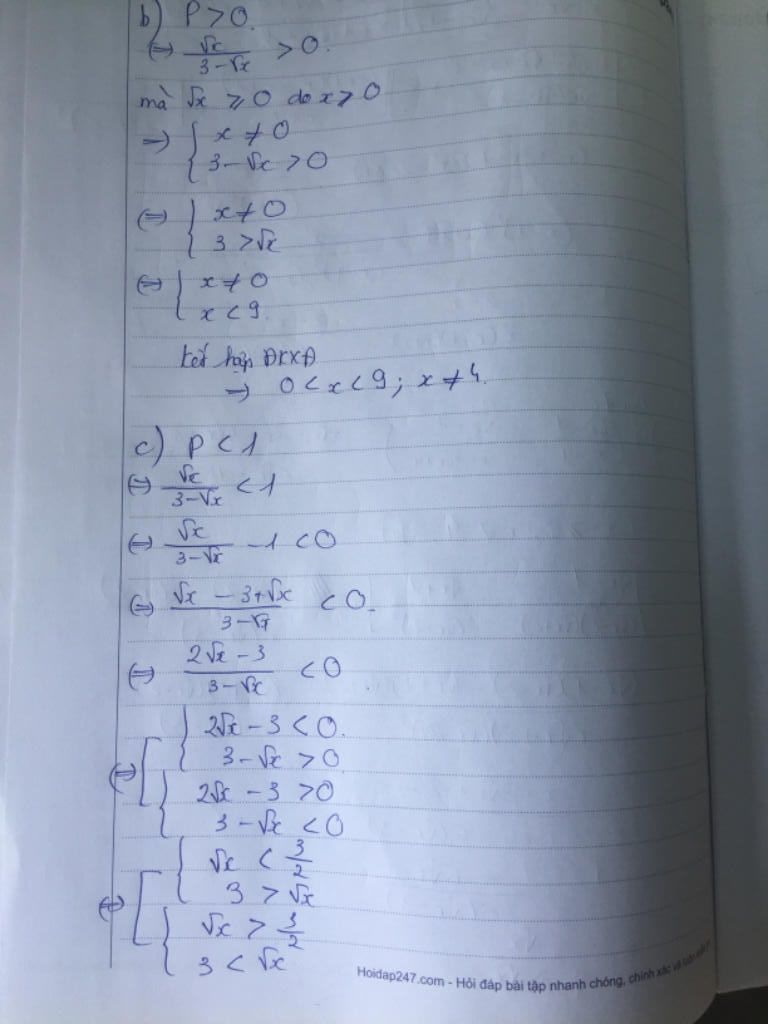 b) P > 0.
⇔ √x / (3-√x) > 0.
mà √x ⩾ 0 do x ⩾ 0
→ { x ≠ 0
3-√x > 0
⇔ { x ≠ 0
3 > √x
⇔ { x ≠ 0
x < 9.
kết hợp ĐKXĐ
→ 0 < x < 9; x ≠ 4.
c) P < 1
⇔ √x / (3-√x) < 1
⇔ √x / (3-√x) - 1 < 0
⇔ (√x - 3+√x) / (3-√x) < 0.
⇔ (2√x - 3) / (3-√x) < 0
⇔ [ { 2√x - 3 < 0.
3-√x > 0
{ 2√x - 3 > 0
3-√x < 0
⇔ [ { √x < 3/2
3 > √x
{ √x > 3/2
3 < √x
Hoidap247.com - Hỏi đáp bài tập nhanh chóng, chính xác và